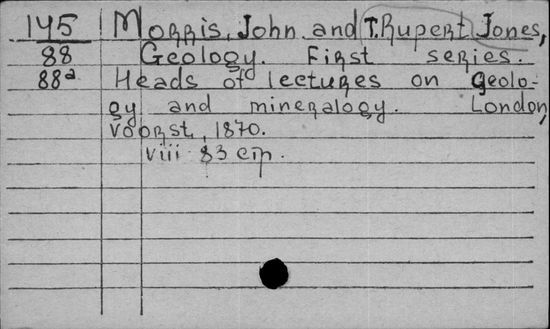 145 Morris, John and T. Rupert Jones,
88 Geology. First series.
88a Heads of lectures on geolo-
gy and mineralogy. London,
Voorst, 1870.
viii 83 cip.